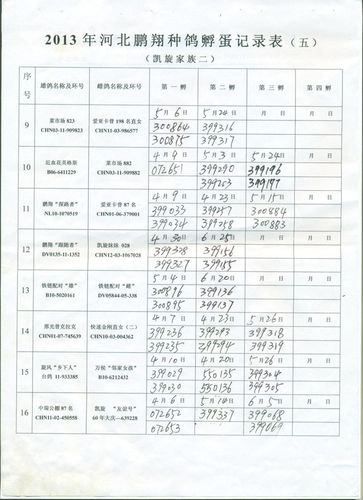 2013年河北鹏翔种鸽孵蛋记录表（五）
（凯旋家族二）
序号 雌鸽名称及环号 雄鸽名称及环号 第一孵 第二孵 第三孵 第四孵
9 菜市场 823 爱亚卡普 198 名直女 5月6日 5月24日 月 日 月 日
CHN03-11-909823 CHN11-03-986577 300864 399316
300875 399317
10 近血花英格斯 菜市场 882 4月9日 5月3日 5月24日 月 日
B06-6411229 CHN03-11-909882 072651 399290 399196
399203 399197
11 鹏翔 "探路者" 爱亚卡普 87 名 4月9日 4月23日 5月15日 月 日
NL10-1070519 CHN01-06-379001 399033 399257 300884
399034 399258 300883
12 鹏翔 "探路者" 凯旋妹妹 028 4月30日 6月25日 月 日 月 日
DV0135-11-1352 CHN12-03-1067028 399328 399156
399327 399155
13 铁链配对 "雄" 5月4日 6月20日 月 日 月 日
B10-5020161 DV05844-05-338 300896 399136
300895 399137
14 邢光普克拉克 快速金刚直女（二） 4月7日 4月23日 5月26日 月 日
CHN01-07-745639 CHN10-03-004362 399236 399293 399318
399235 399294 399319
15 旋风 "乡下人" 万侯 "邻家女孩" 4月10日 4月20日 5月26日 月 日
台鸽 11-933385 B10-6212432 399029 550135 399304
399030 550136 399305
16 中瑞公棚 87 名 凯旋 "友谊号" 4月6日 5月14日 6月5日 月 日
CHN11-02-450558 60 年大庆-639228 072652 399337 399068
072653 399069